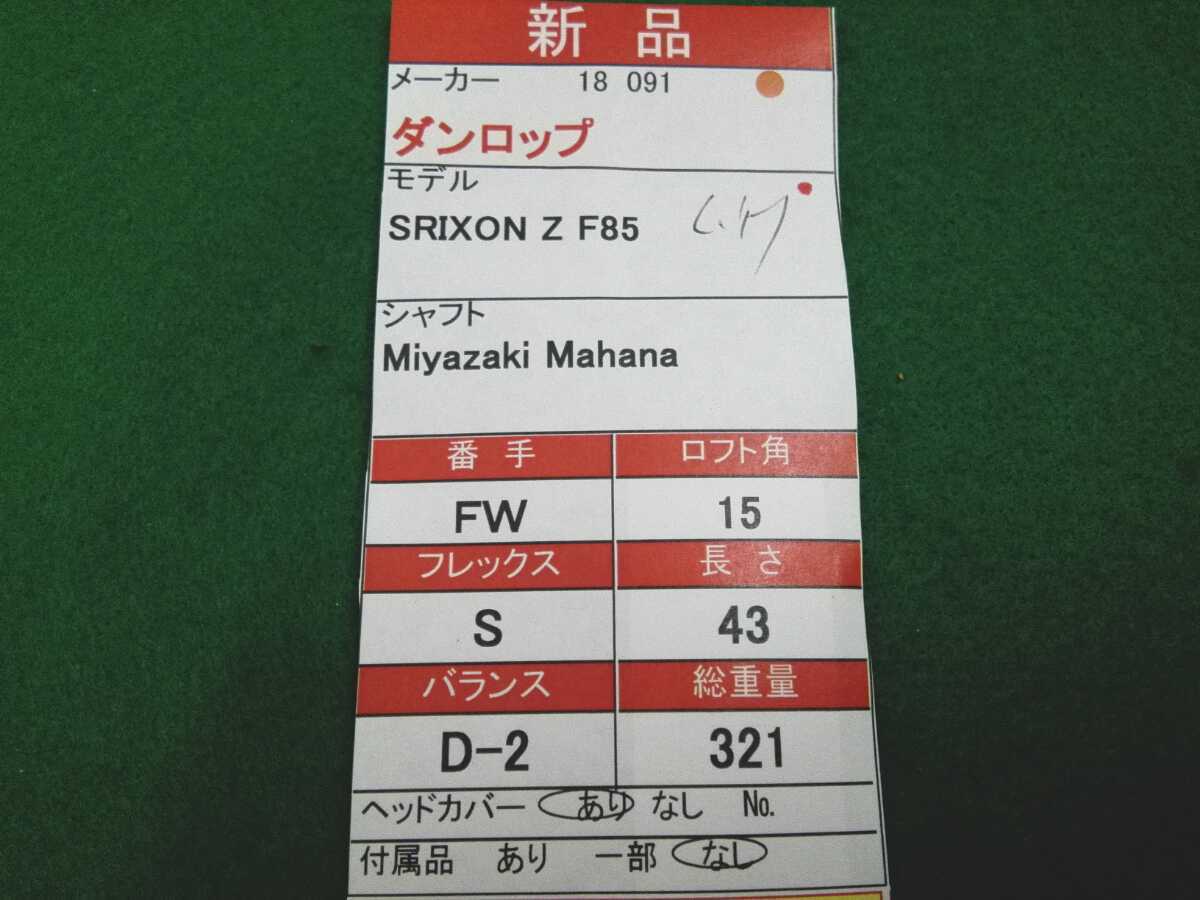 新 品
メーカー 18 091
ダンロップ
モデル
SRIXON Z F85
シャフト
Miyazaki Mahana
番 手 ロフト角
FW 15
フレックス 長 さ
S 43
バランス 総重量
D-2 321
ヘッドカバー あり なし No.
付属品 あり 一部 なし